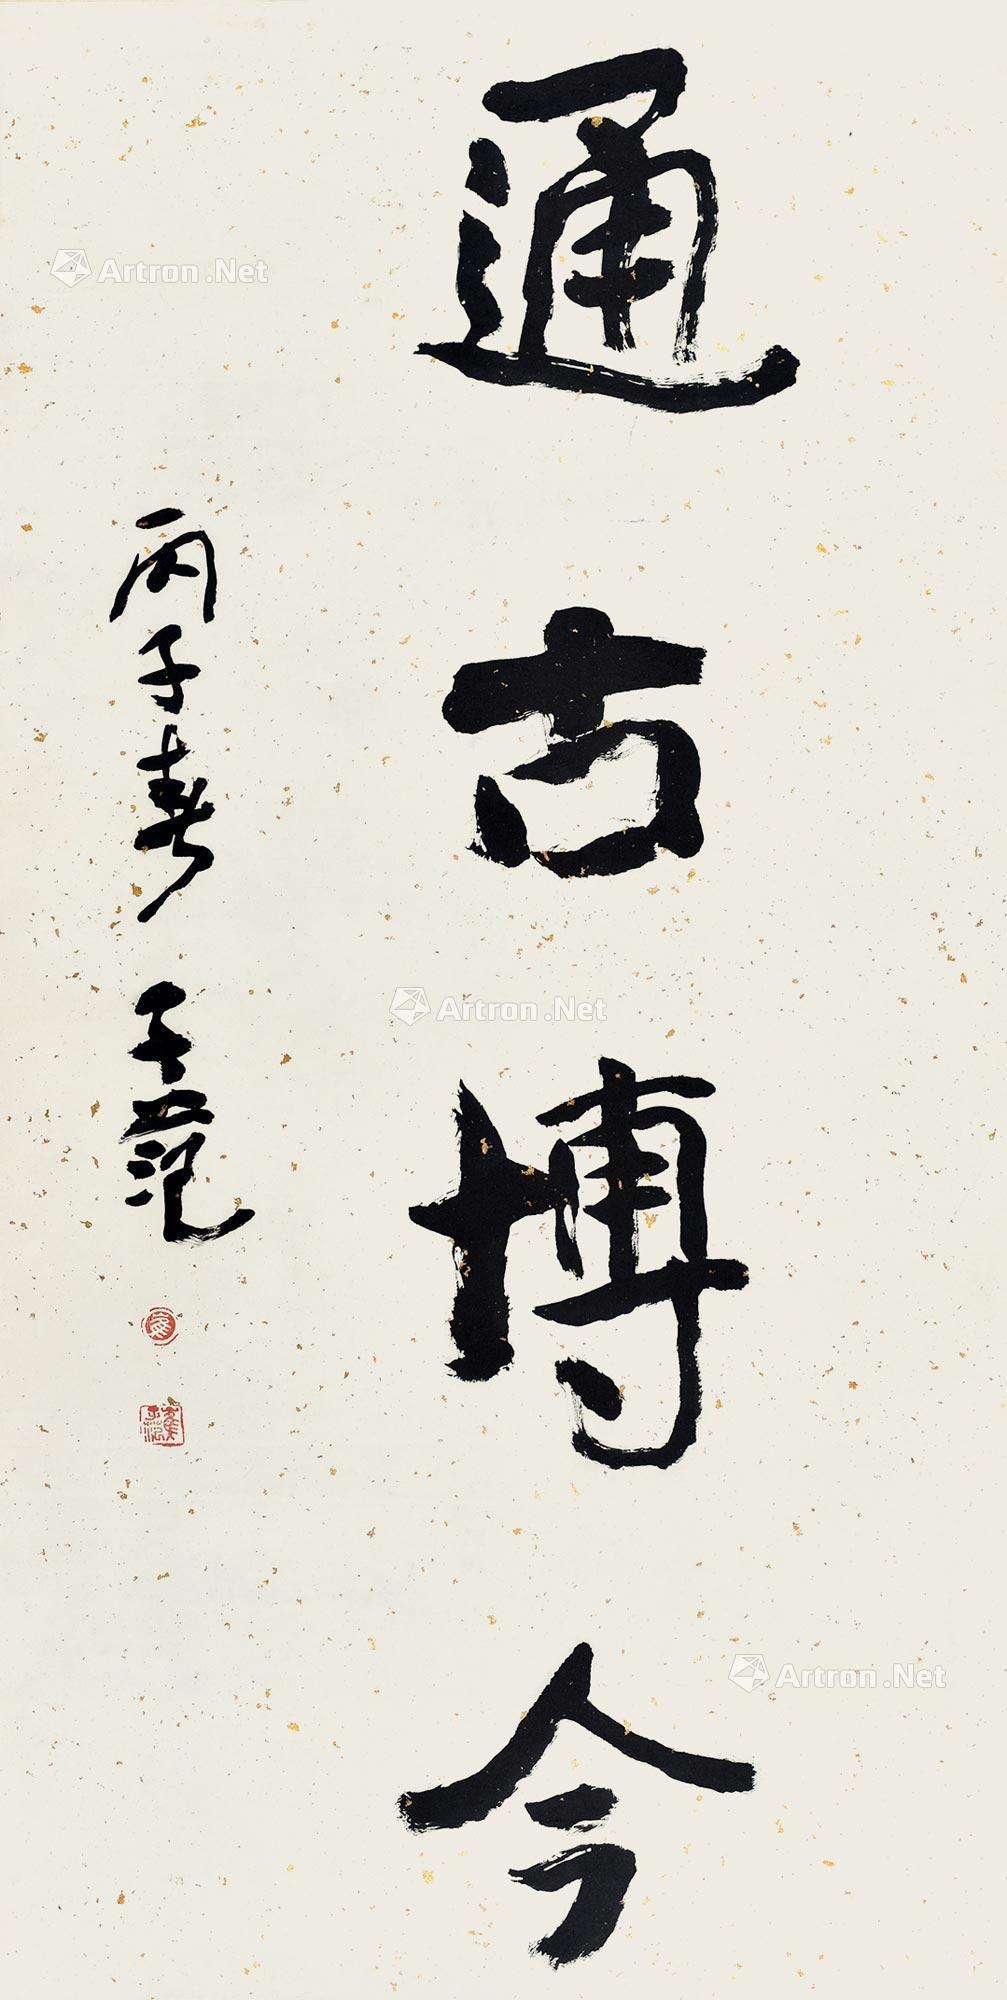 通古博今
丙子春 子范
Artron.Net
Artron.Net
Artron.Net